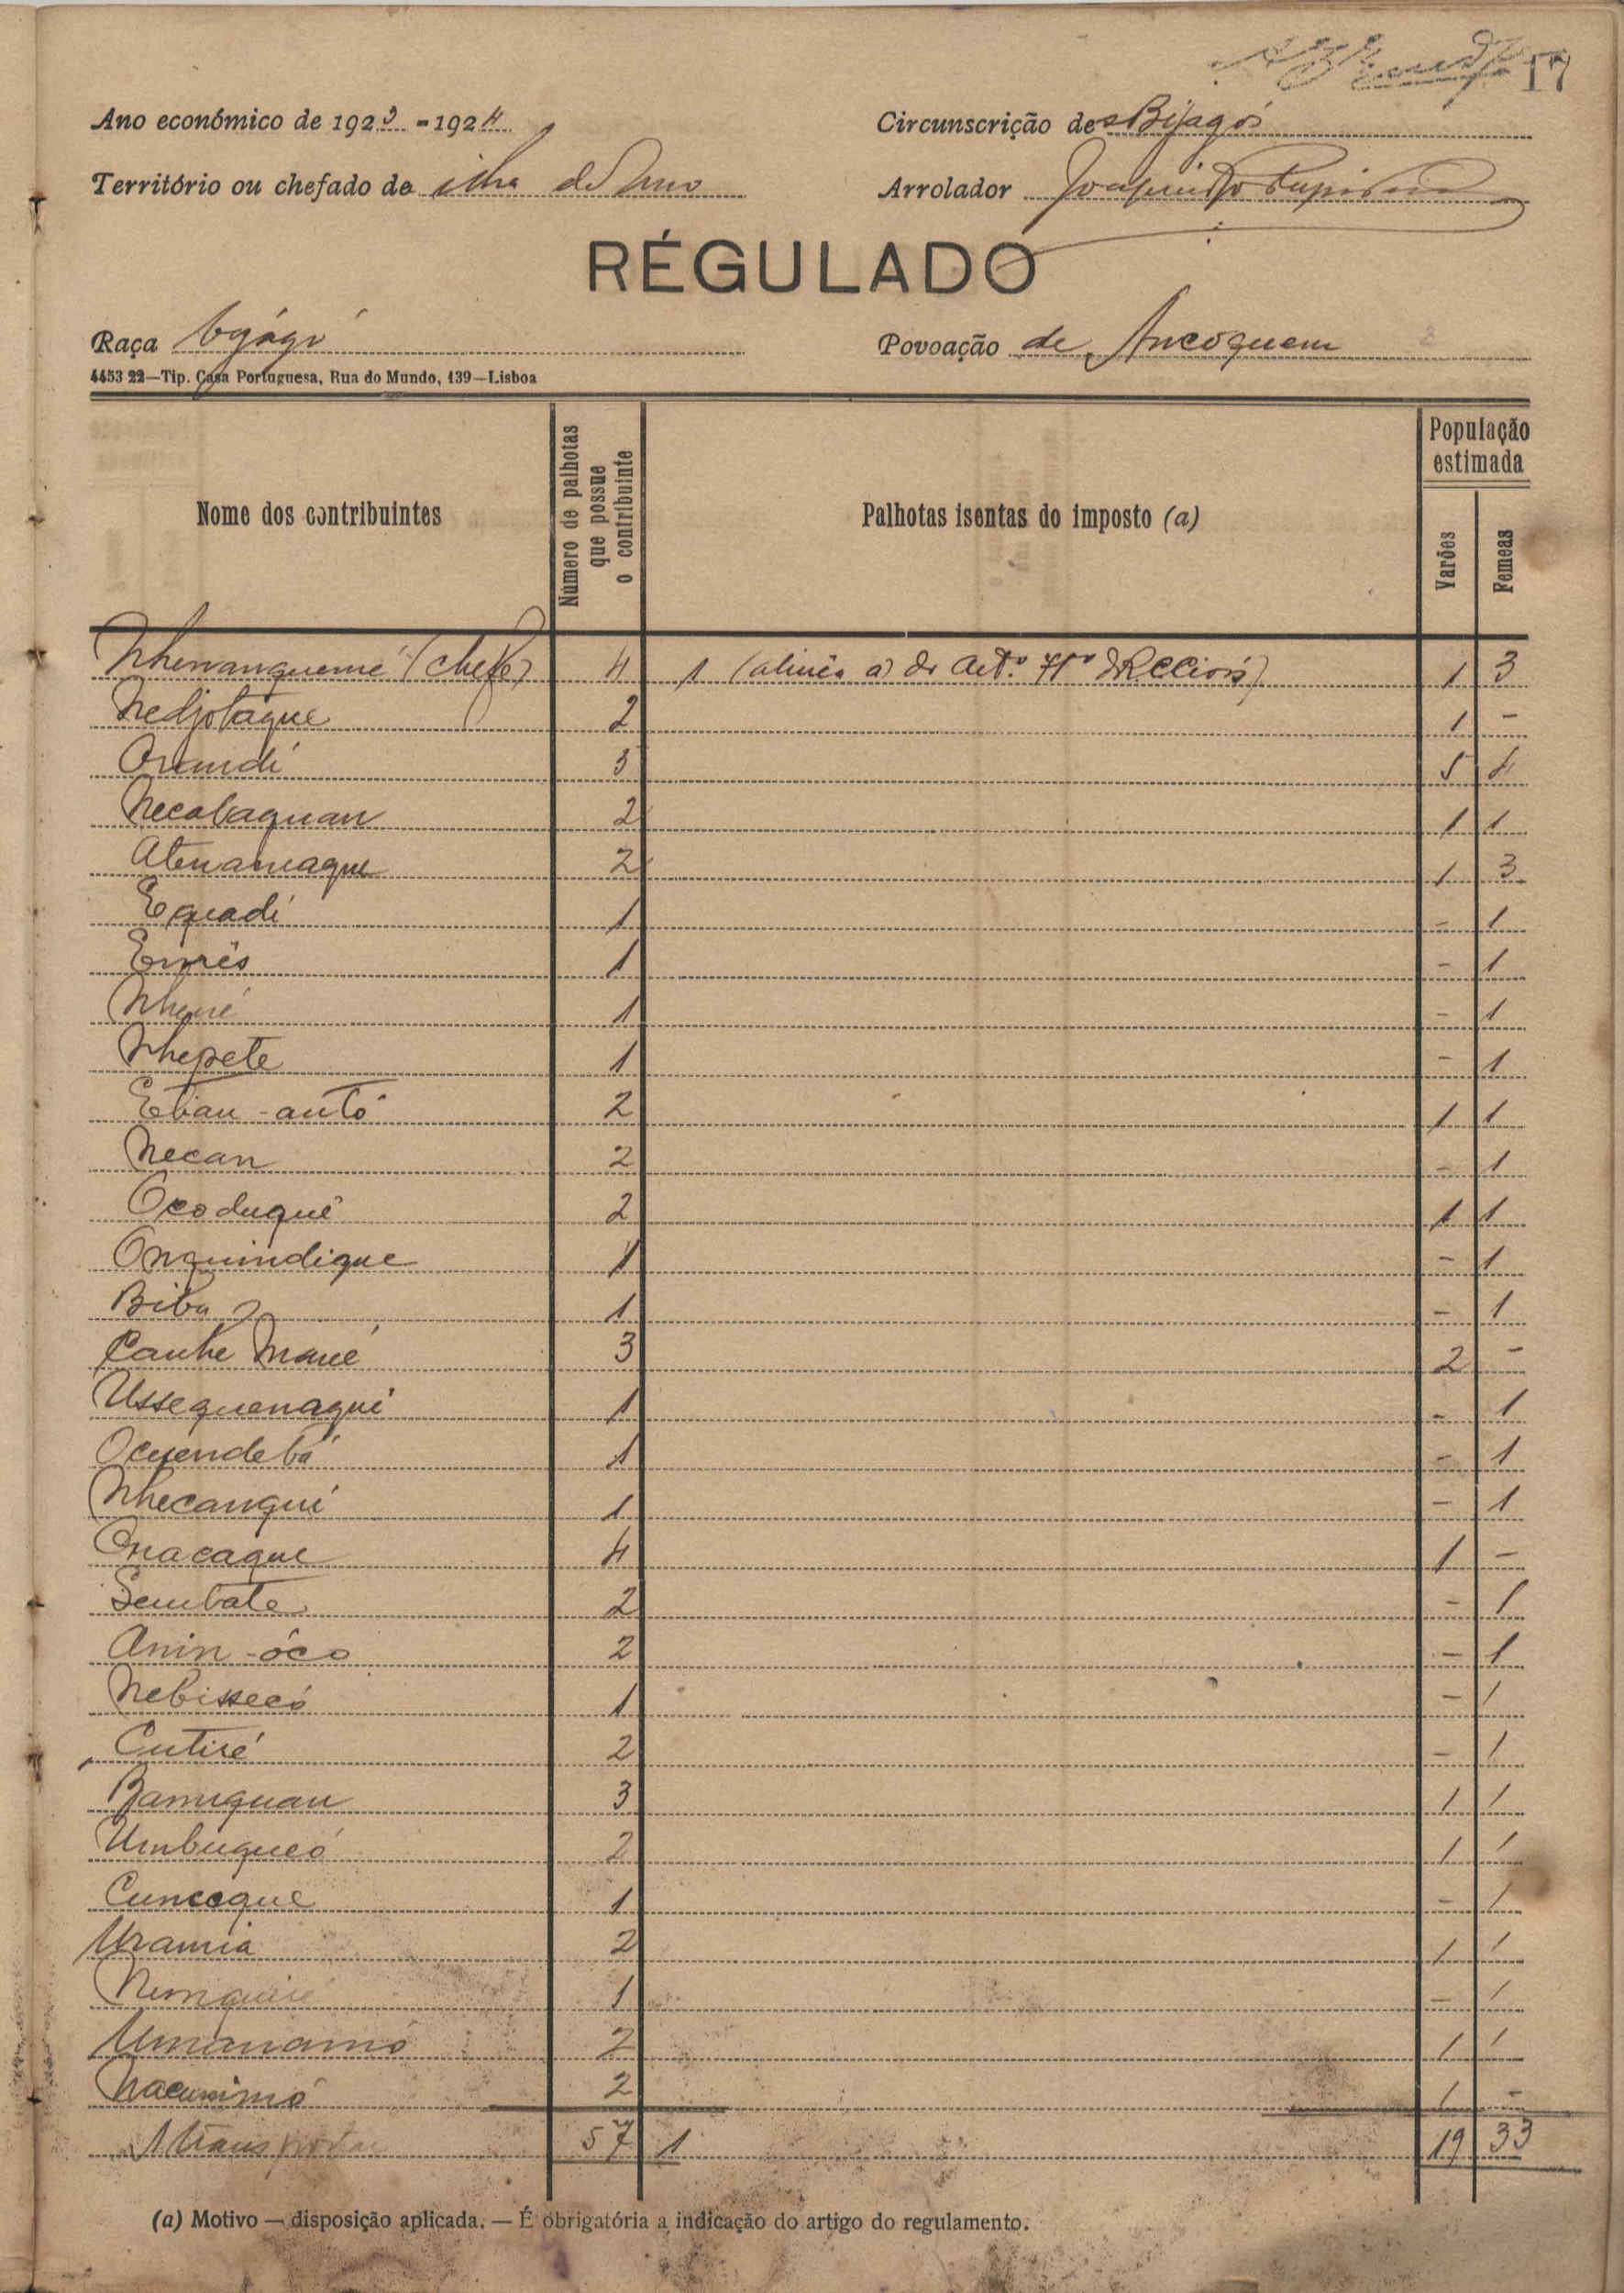 17
Ano económico de 1923 - 1924
Circunscrição de Bijagós
Território ou chefado de ilha de Uno
Arrolador
RÉGULADO
Raça bijágó
Povoação de Ancoquem
4453 22—Tip. Casa Portuguesa, Rua do Mundo, 139—Lisboa
Nome dos contribuintes
Número de palhotas que possue o contribuinte
Palhotas isentas do imposto (a)
População estimada
Varões
Femeas
(chefe) 4 1 (alinea a) do Artº 1 3
Nedjobaque 2 1 -
3 5 4
Necobaquan 2 1 1
2 1 3
Equadi 1 - 1
1 - 1
1 - 1
Nhepete 1 - 1
Etian-antó 2 1 1
Necan 2 - 1
Ocoduqué 2 1 1
Onquindique 1 - 1
Biba 1 - 1
Canhe Mané 3 2 -
Ussequenaqui 1 - 1
Ocuendebá 1 - 1
Nhecanqui 1 - 1
Onacaque 4 1 -
Sembate 2 - 1
Anin-óco 2 - 1
Nebissecó 1 - 1
Cutiré 2 - 1
Banuquan 3 1 1
Umbuqueó 2 1 1
Cuncoque 1 - 1
Urania 2 1 1
1 - 1
2 1 1
2 1 -
A transportar 57 1 19 33
(a) Motivo — disposição aplicada. — É obrigatória a indicação do artigo do regulamento.